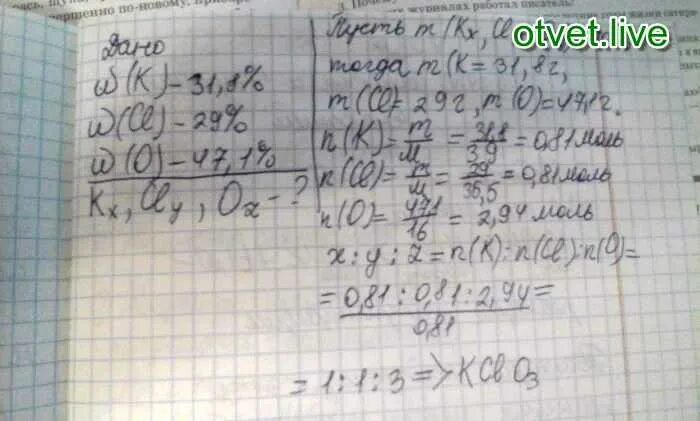 шершенно по-новому.
журналах работал писатель!
otvet.live
Дано
w(K) – 31,8%
w(Cl) – 29%
w(O) – 47,1%
Kx, Cly, Oz – ?
Пусть m(Kx, Cl
тогда m(K = 31,8г,
m(Cl)= 29г, m(O)=47,1г.
n(K)= m/M = 31,8/39 = 0,81 моль
n(Cl)= m/M = 29/35,5 = 0,81 моль
n(O)= 47,1/16 = 2,94 моль
x : y : z = n(K) : n(Cl) : n(O)=
= 0,81 : 0,81 : 2,94 =
0,81
= 1 : 1 : 3 => KClO3